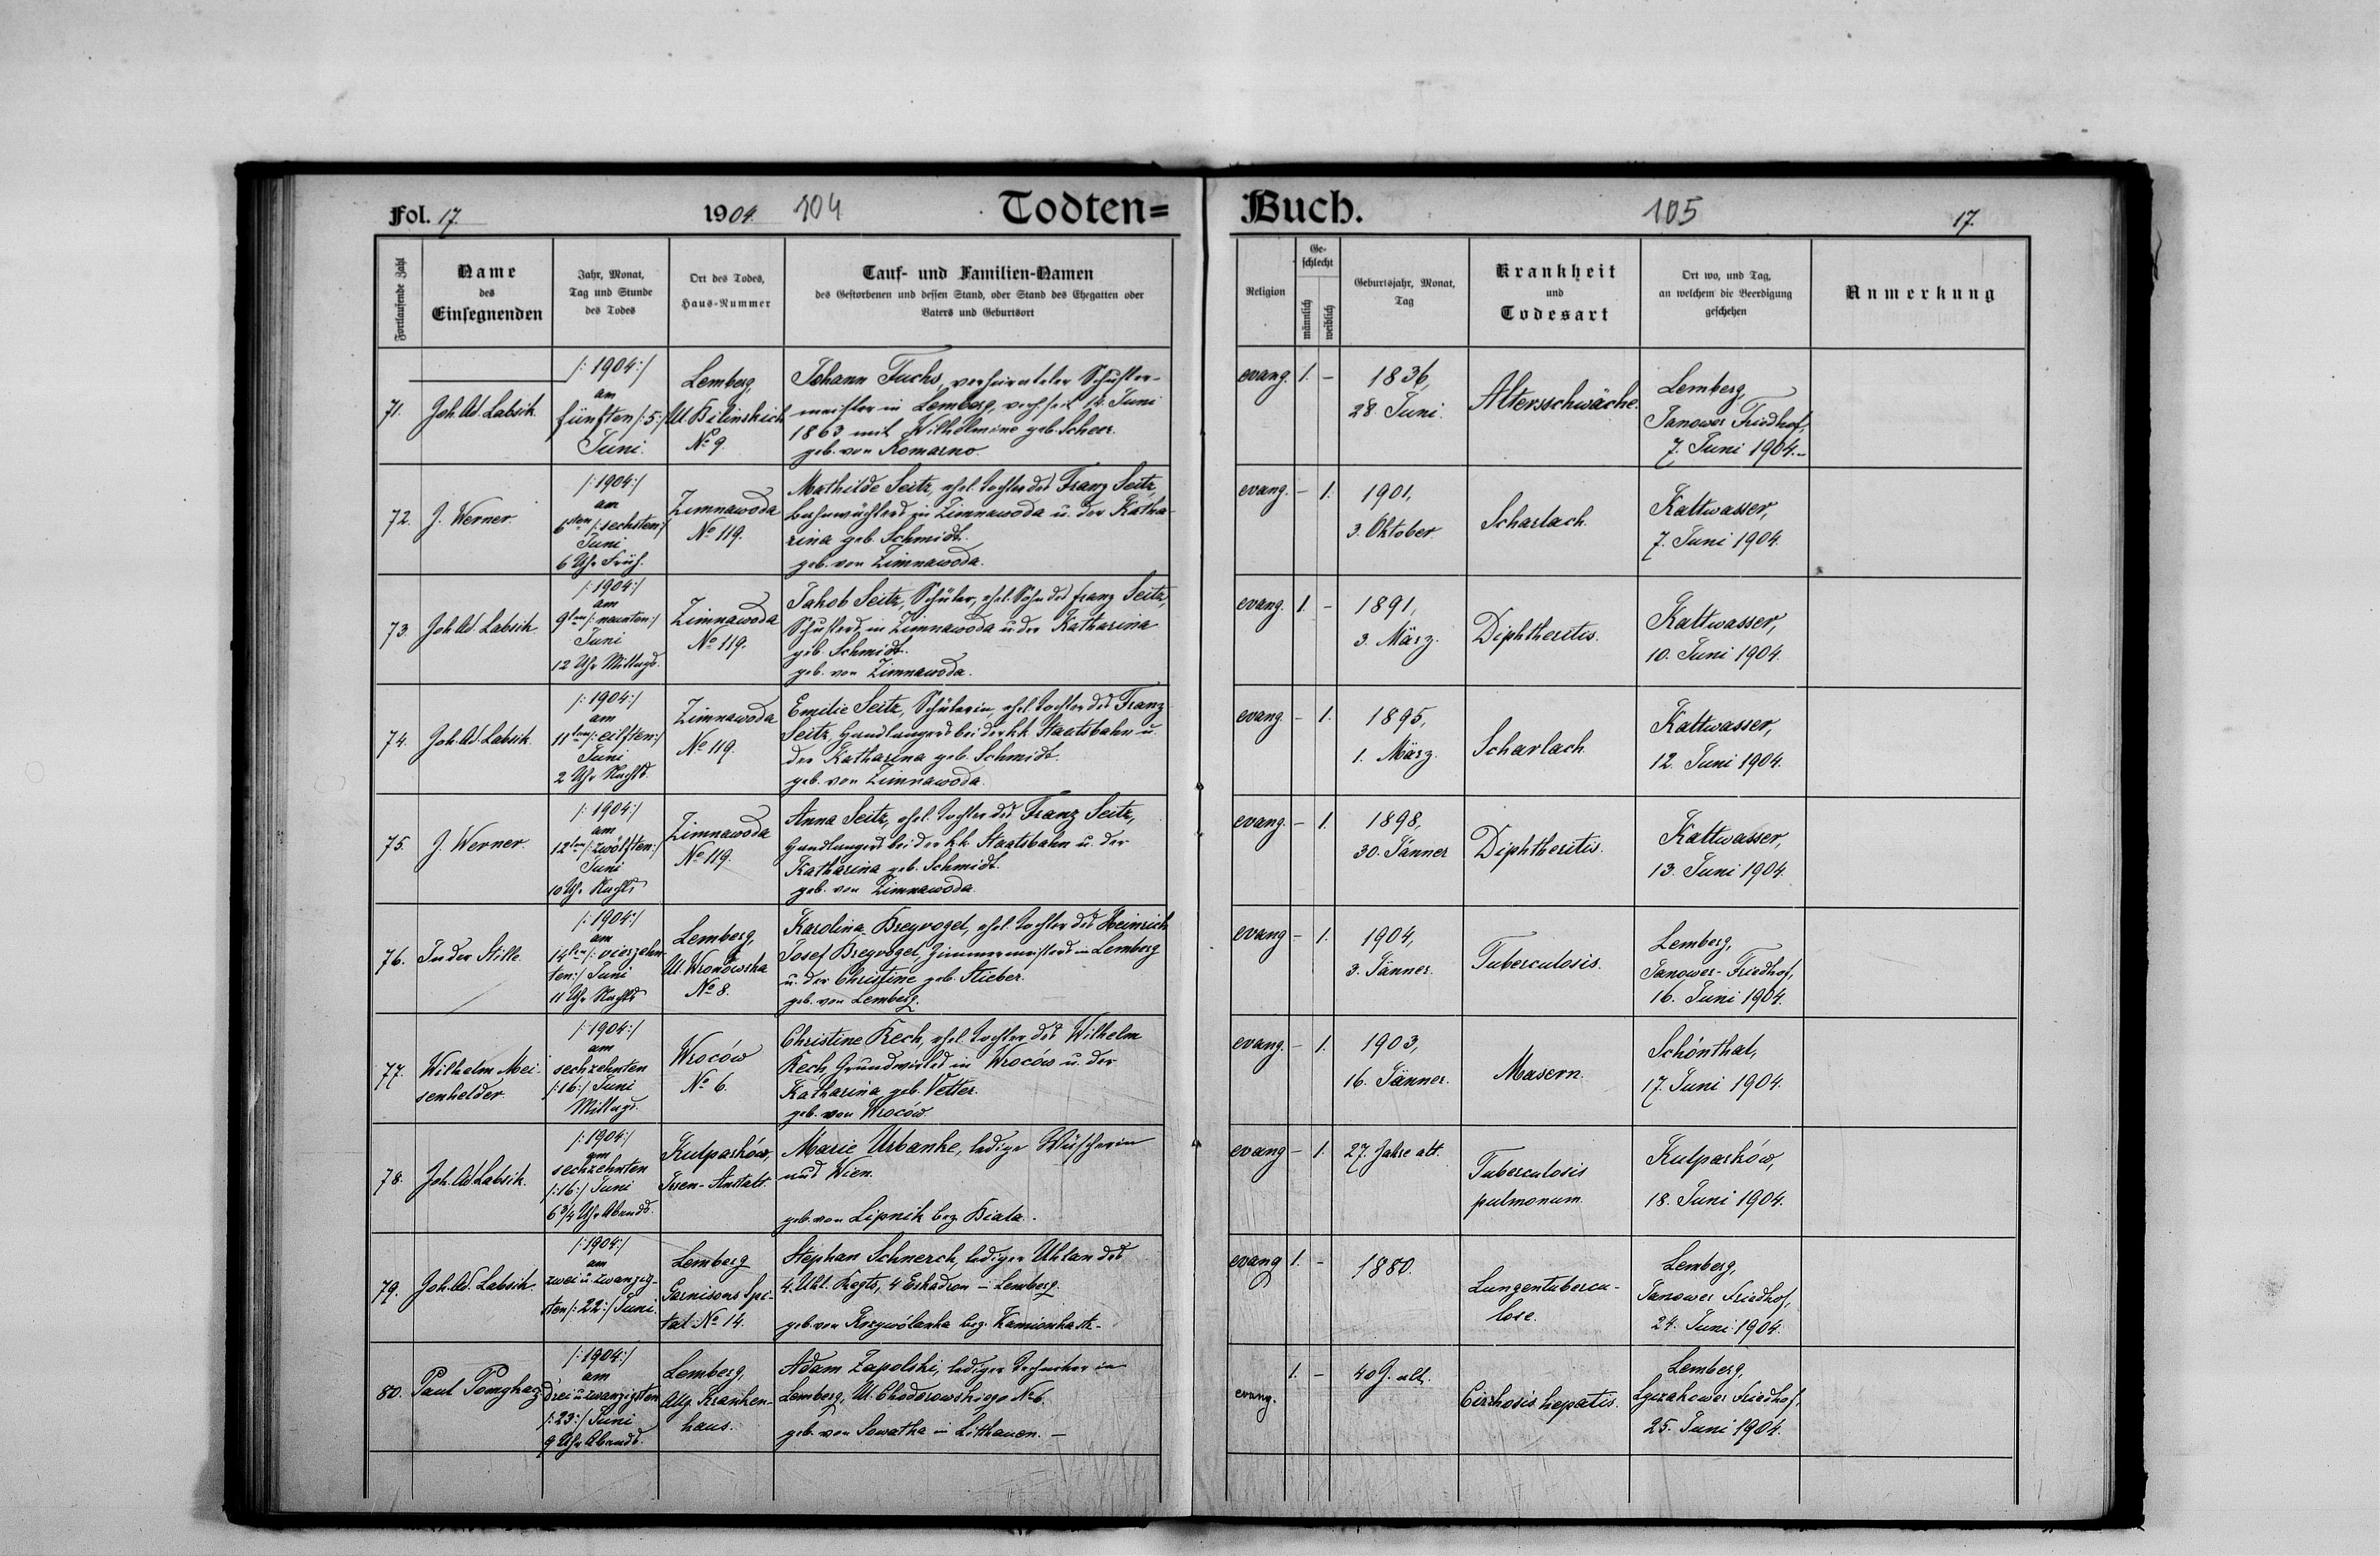 Fol. 17.
1904.
104
Todten=
Buch.
105
17.
Fortlaufende Zahl
Name
des
Einsegnenden
Jahr, Monat,
Tag und Stunde
des Todes
Ort des Todes,
Haus-Nummer
Tauf- und Familien-Namen
des Gestorbenen und dessen Stand, oder Stand des Ehegatten oder
Vaters und Geburtsort
Religion
Ge-
schlecht
männlich
weiblich
Geburtsjahr, Monat,
Tag
Krankheit
und
Todesart
Ort wo, und Tag,
an welchem die Beerdigung
geschehen
Anmerkung
71.
Joh. Ad. Labsik.
/: 1904:/
am
fünften /:5:/
Juni.
Lemberg,
Ul. Bilinskich
No 9.
Johann Fuchs, verheirateter Schuster-
meister in Lemberg, vereh. seit 14. Juni
1863 mit Wilhelmine geb. Scheer.
geb. von Komarno.
evang.
1. –
1836,
28. Juni.
Altersschwäche.
Lemberg,
Janower Friedhof,
7. Juni 1904.–
72.
J. Werner.
/: 1904:/
am
6ten /: sechsten:/
Juni
6 Uhr Früh.
Zimnawoda
No 119.
Mathilde Seitz, ehel. Tochter des Franz Seitz,
Bahnwächters in Zimnawoda u. der Katha-
rina geb. Schmidt.
geb. von Zimnawoda.
evang.
– 1.
1901,
3. Oktober.
Scharlach.
Kaltwasser,
7. Juni 1904.
73.
Joh. Ad. Labsik.
/: 1904:/
am
9ten /: neunten:/
Juni
12 Uhr Mittags.
Zimnawoda
No 119.
Jakob Seitz, Schüler, ehel. Sohn des Franz Seitz,
Schusters in Zimnawoda u. der Katharina
geb. Schmidt.
geb. von Zimnawoda.
evang.
1. –
1891,
3. März.
Diphtheritis.
Kaltwasser,
10. Juni 1904.
74.
Joh. Ad. Labsik.
/: 1904:/
am
11ten /: eilften:/
Juni
2 Uhr Nachts.
Zimnawoda
No 119.
Emilie Seitz, Schülerin, ehel. Tochter des Franz
Seitz, Handlangers bei der k.k. Staatsbahn u.
der Katharina geb. Schmidt.
geb. von Zimnawoda.
evang.
– 1.
1895,
1. März.
Scharlach.
Kaltwasser,
12. Juni 1904.
75.
J. Werner.
/: 1904:/
am
12ten /: zwölften:/
Juni
10 Uhr Nachts
Zimnawoda
No 119.
Anna Seitz, ehel. Tochter des Franz Seitz,
Handlangers bei der k.k. Staatsbahn u. der
Katharina geb. Schmidt.
geb. von Zimnawoda.
evang.
– 1.
1898,
30. Jänner
Diphtheritis.
Kaltwasser,
13. Juni 1904.
76.
In der Stille.
/: 1904:/
am
14ten /: vierzehn-
ten:/ Juni
11 Uhr Nachts
Lemberg,
Ul. Wronowska
No 8.
Karolina Breyvogel, ehel. Tochter des Heinrich
Josef Breyvogel, Zimmermeisters in Lemberg
u. der Christine geb. Stieber.
geb. von Lemberg.
evang
– 1.
1904,
3. Jänner.
Tuberculosis.
Lemberg,
Janower-Friedhof,
16. Juni 1904.
77.
Wilhelm Mei-
senhelder.
/: 1904:/
am
sechzehnten
/:16:/ Juni
Mittags.
Wroców
No 6.
Christine Kech, ehel. Tochter des Wilhelm
Kech, Grundwirtes in Wroców u. der
Katharina geb. Vetter.
geb. von Wroców.
evang.
– 1.
1903,
16. Jänner.
Masern.
Schönthal,
17. Juni 1904.
78.
Joh. Ad. Labsik.
/: 1904:/
am
sechzehnten
/:16:/ Juni
6 3/4 Uhr Abends.
Kulparków,
Irren-Anstalt.
Marie Urbanke, ledige Wäscherin
aus Wien.
geb. von Lipnik bez. Biala.
evang
– 1.
27. Jahre alt.
Tuberculosis
pulmonum.
Kulparków,
18. Juni 1904.
79.
Joh. Ad. Labsik.
/: 1904:/
am
zwei u. zwanzig-
sten /: 22:/ Juni.
Lemberg
Garnisons Spi-
tal No 14.
Stephan Schnerch, lediger Uhlan des
4. Uhl. Regts, 4 Eskadron – Lemberg.
geb. von Krzywólanka bez. Kamionka st.
evang
1. –
1880.
Lungentubercu-
lose.
Lemberg,
Janower Friedhof,
24. Juni 1904.
80.
Paul Pomghaz
/: 1904:/
am
drei u. zwanzigsten
/:23:/ Juni
9 Uhr Abends.
Lemberg,
Allg. Kranken-
haus.
Adam Zapolski, lediger Techniker in
Lemberg, Ul. Chodorowskiego No 6.
geb. von Sowatha in Litthauen. –
evang.
1. –
40 J. alt.
Cirrhosis hepatis.
Lemberg,
Lyczakower Friedhof,
25. Juni 1904.